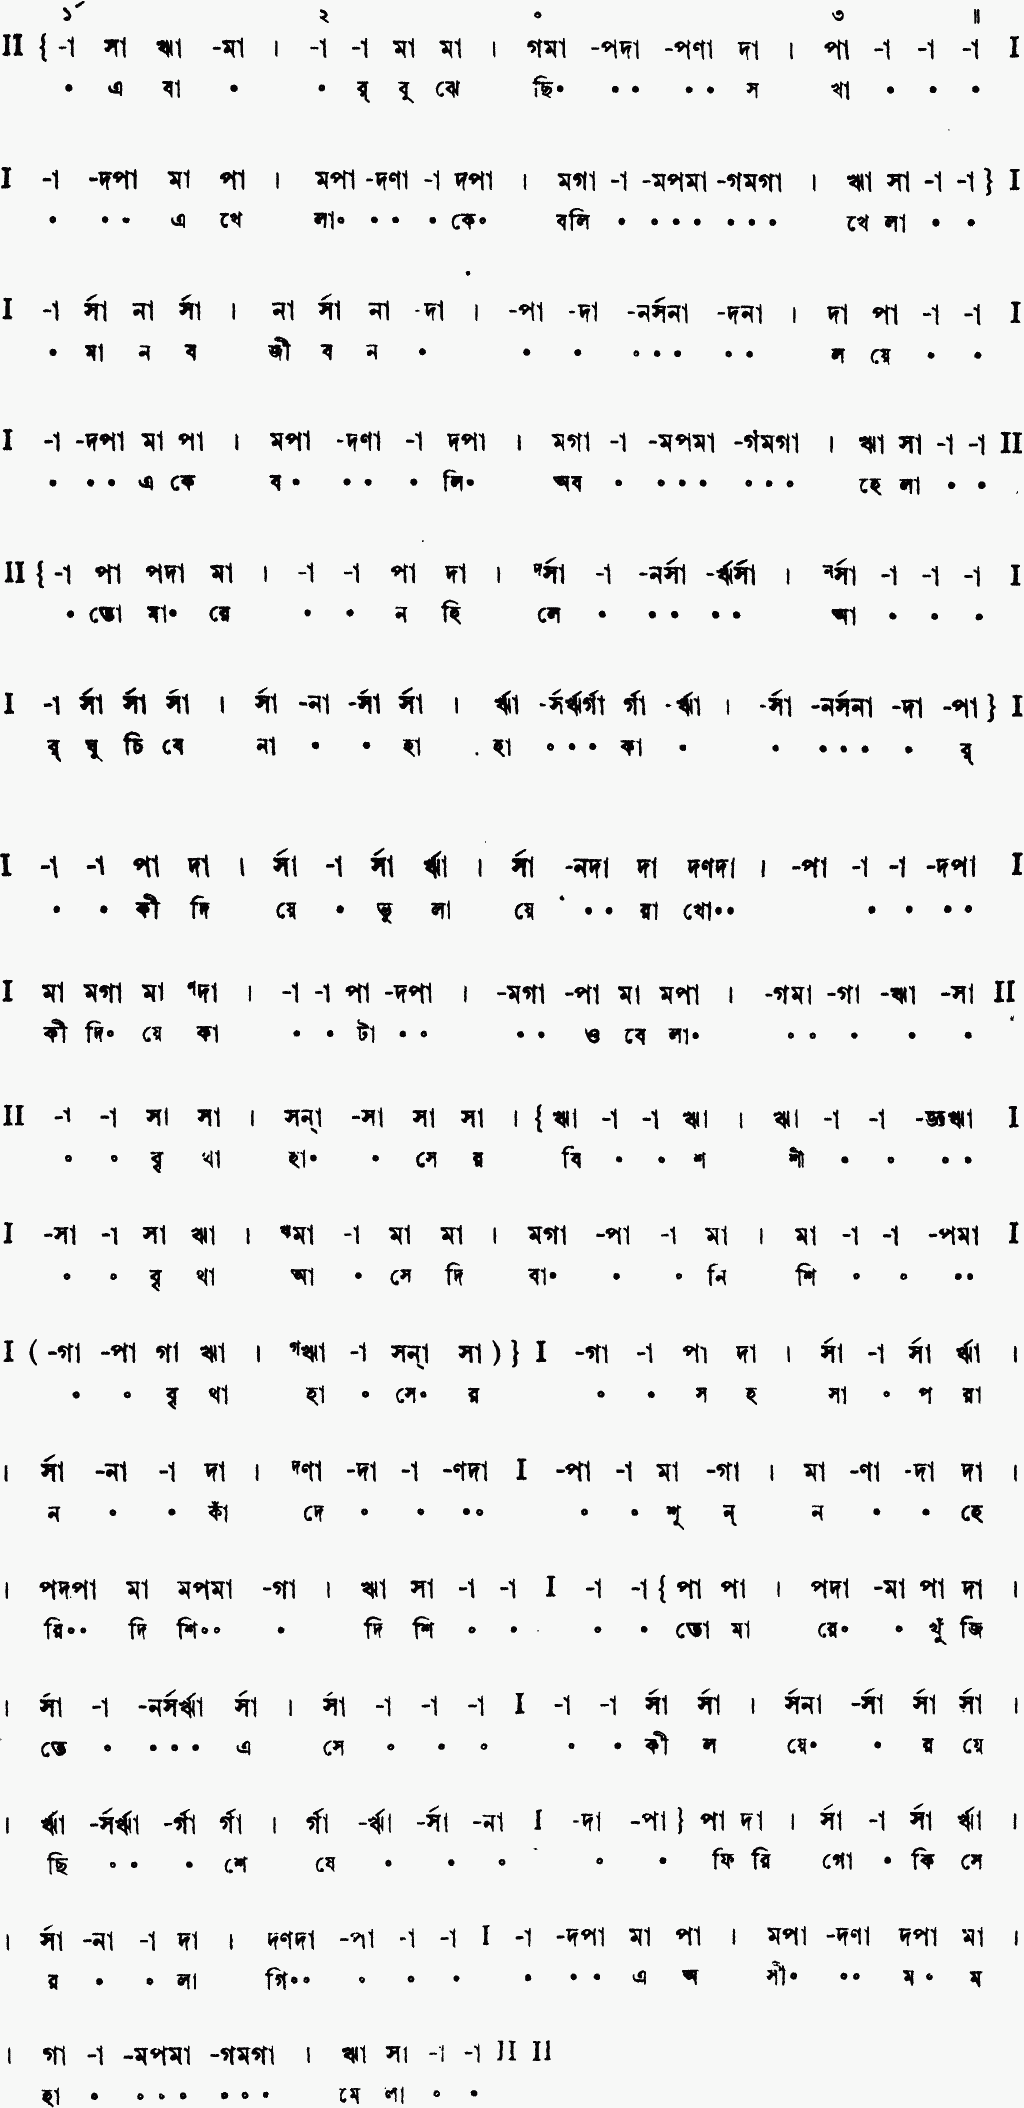 ১´ ২ ০ ৩ ॥
II { -া সা ঋা -মা । -া -া মা মা । গমা -পদা -পণা দা । পা -া -া -া I
• এ বা • • র্ বু ঝে ছি• •• •• স খা • • •
I -া -দপা মা পা । মপা -দণা -া দপা । মগা -া -মপমা -গমগা । ঋা সা -া -া } I
• •• এ খে লা• •• • কে• বলি • ••• ••• খে লা • •
I -া র্সা না র্সা । না র্সা না -দা । -পা -দা -নর্সনা -দনা । দা পা -া -া I
• মা ন ব জী ব ন • • • ••• •• ল য়ে • •
I -া -দপা মা পা । মপা -দণা -া দপা । মগা -া -মপমা -গমগা । ঋা সা -া -া II
• •• এ কে ব• •• • লি• অব • ••• ••• হে লা • •
II { -া পা পদা মা । -া -া পা দা । ᵈর্সা -া -নর্সা -র্ঋর্সা । ⁿর্সা -া -া -া I
• তো মা• রে • • ন হি লে • •• •• আ • • •
I -া র্সা র্সা র্সা । র্সা -না -র্সা র্সা । র্ঋা -র্সর্ঋর্গা র্গা -র্ঋা । -র্সা -নর্সনা -দা -পা } I
র্ ঘু চি বে না • • হা হা ••• কা • • ••• • র্
I -া -া পা দা । র্সা -া র্সা র্ঋা । র্সা -নদা দা দণদা । -পা -া -া -দপা I
• • কী দি য়ে • ভু লা য়ে •• রা খো•• • • • ••
I মা মগা মা ণদা । -া -া পা -দপা । -মগা -পা মা মপা । -গমা -গা -ঋা -সা II
কী দি• য়ে কা • • টা •• •• ও বে লা• •• • • •
II -া -া সা সা । সন্া -সা সা সা । { ঋা -া -া ঋা । ঋা -া -া -জ্ঞঋা I
• • বৃ থা হা• • সে র বি • • শ শী • • ••
I -সা -া সা ঋা । ঋমা -া মা মা । মগা -পা -া মা । মা -া -া -পমা I
• • বৃ থা আ • সে দি বা• • • নি শি • • ••
I ( -গা -পা গা ঋা । গঋা -া সন্া সা ) } I -গা -া পা দা । র্সা -া র্সা র্ঋা ।
• • বৃ থা হা • সে• র • • স হ সা • প রা
। র্সা -না -া দা । দণা -দা -া -ণদা I -পা -া মা -গা । মা -ণা -দা দা ।
ন • • কাঁ দে • • •• • • শূ ন্ ন • • হে
। পদপা মা মপমা -গা । ঋা সা -া -া I -া -া { পা পা । পদা -মা পা দা ।
রি•• দি শি•• • দি শি • • • • তো মা রে• • খুঁ জি
। র্সা -া -নর্সর্ঋা র্সা । র্সা -া -া -া I -া -া র্সা র্সা । র্সনা -র্সা র্সা র্সা ।
তে • ••• এ সে • • • • • কী ল য়ে• • র য়ে
। র্ঋা -র্সর্ঋা -র্গা র্গা । র্গা -র্ঋা -র্সা -না I -দা -পা } পা দা । র্সা -া র্সা র্ঋা ।
ছি •• • শে ষে • • • • • ফি রি গো • কি সে
। র্সা -না -া দা । দণদা -পা -া -া I -া -দপা মা পা । মপা -দণা দপা মা ।
র • • লা গি•• • • • • •• এ অ সী• •• ম• ম
। গা -া -মপমা -গমগা । ঋা সা -া -া II II
হা • ••• ••• মে লা • •